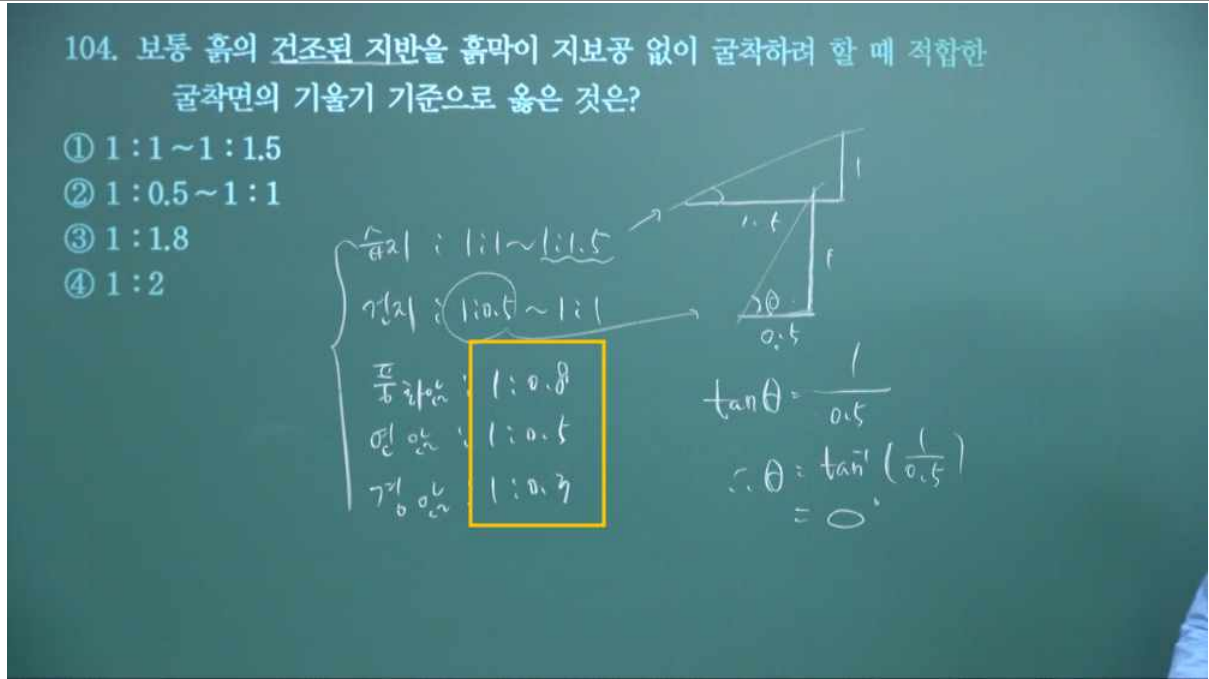 104. 보통 흙의 건조된 지반을 흙막이 지보공 없이 굴착하려 할 때 적합한
굴착면의 기울기 기준으로 옳은 것은?
① 1 : 1 ~ 1 : 1.5
② 1 : 0.5 ~ 1 : 1
③ 1 : 1.8
④ 1 : 2
습지 : 1:1 ~ 1:1.5
건지 : 1:0.5 ~ 1:1
풍화암 : 1:0.8
연암 : 1:0.5
경암 : 1:0.3
1
1.5
1
θ
0.5
tanθ = 1/0.5
∴ θ = tan⁻¹ (1/0.5)
= ○°